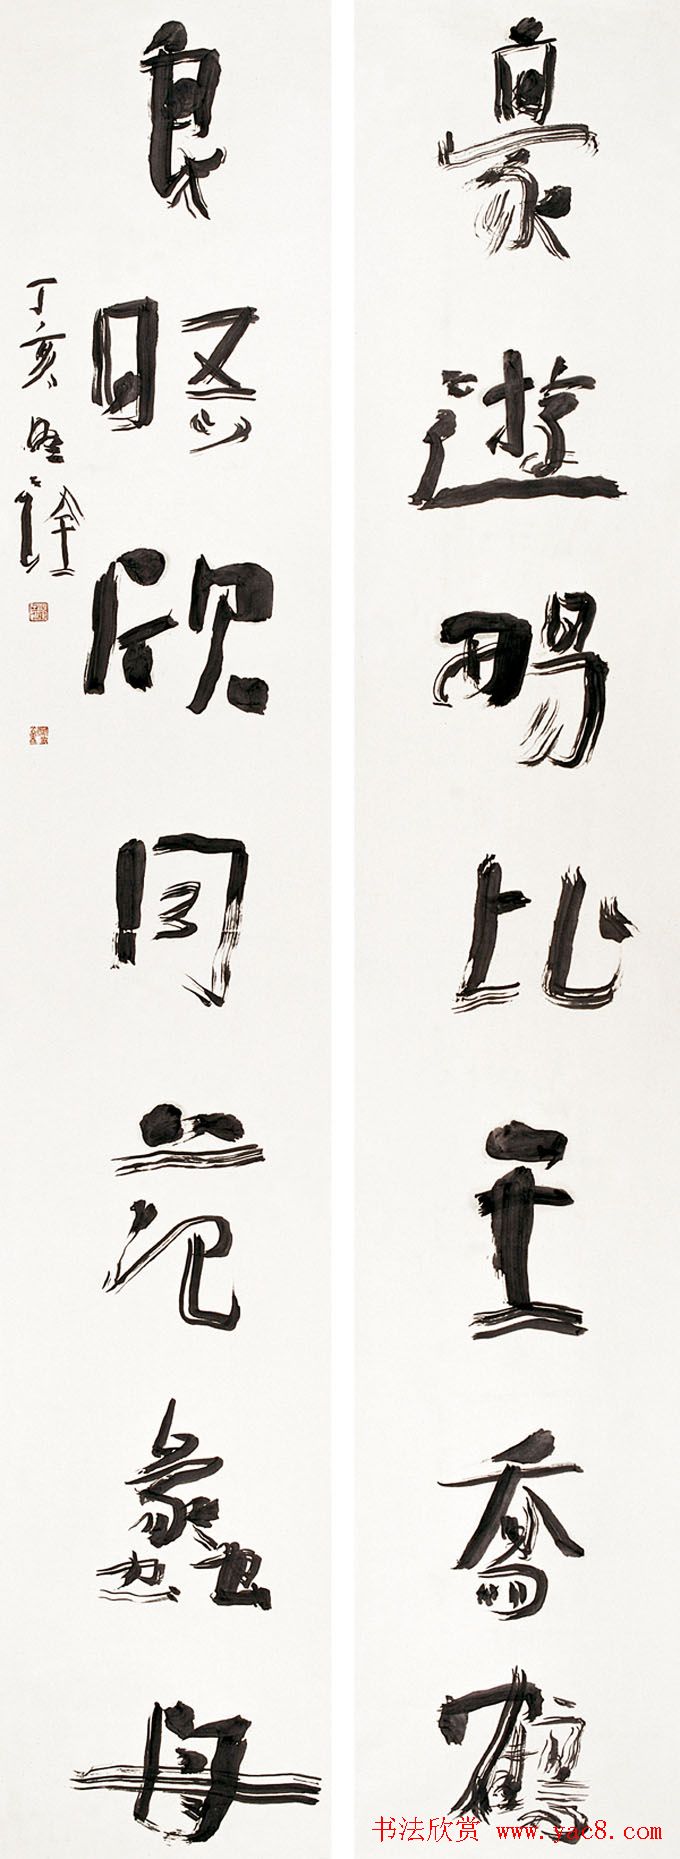 豪遊暢比王喬鶴
良晤欣同范蠡舟
丁亥
书法欣赏 www.yac8.com